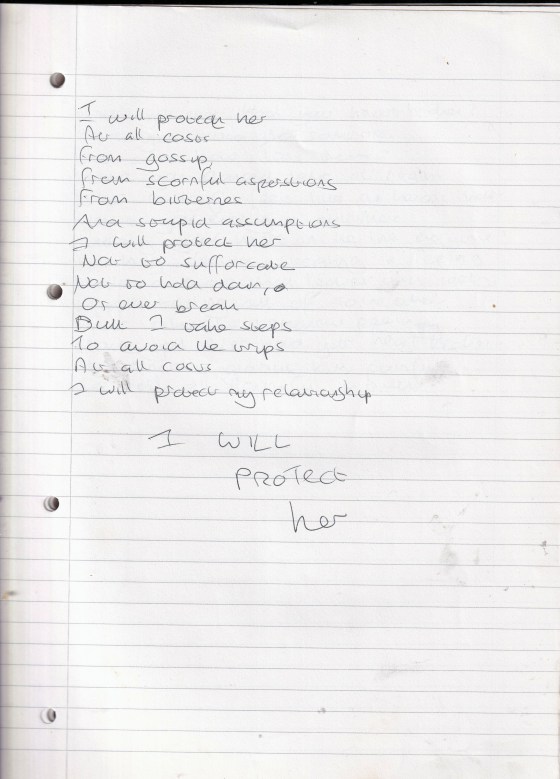 I will protect her
At all costs
From gossip,
From scornful asperstions
From bitternes
And stupid assumptions
I will protect her
Not to sufforcate
Not to hold down,
Or ever break
But I take steps
To avoid the trips
At all costs
I will protect my relationship
I WILL
PROTECT
her